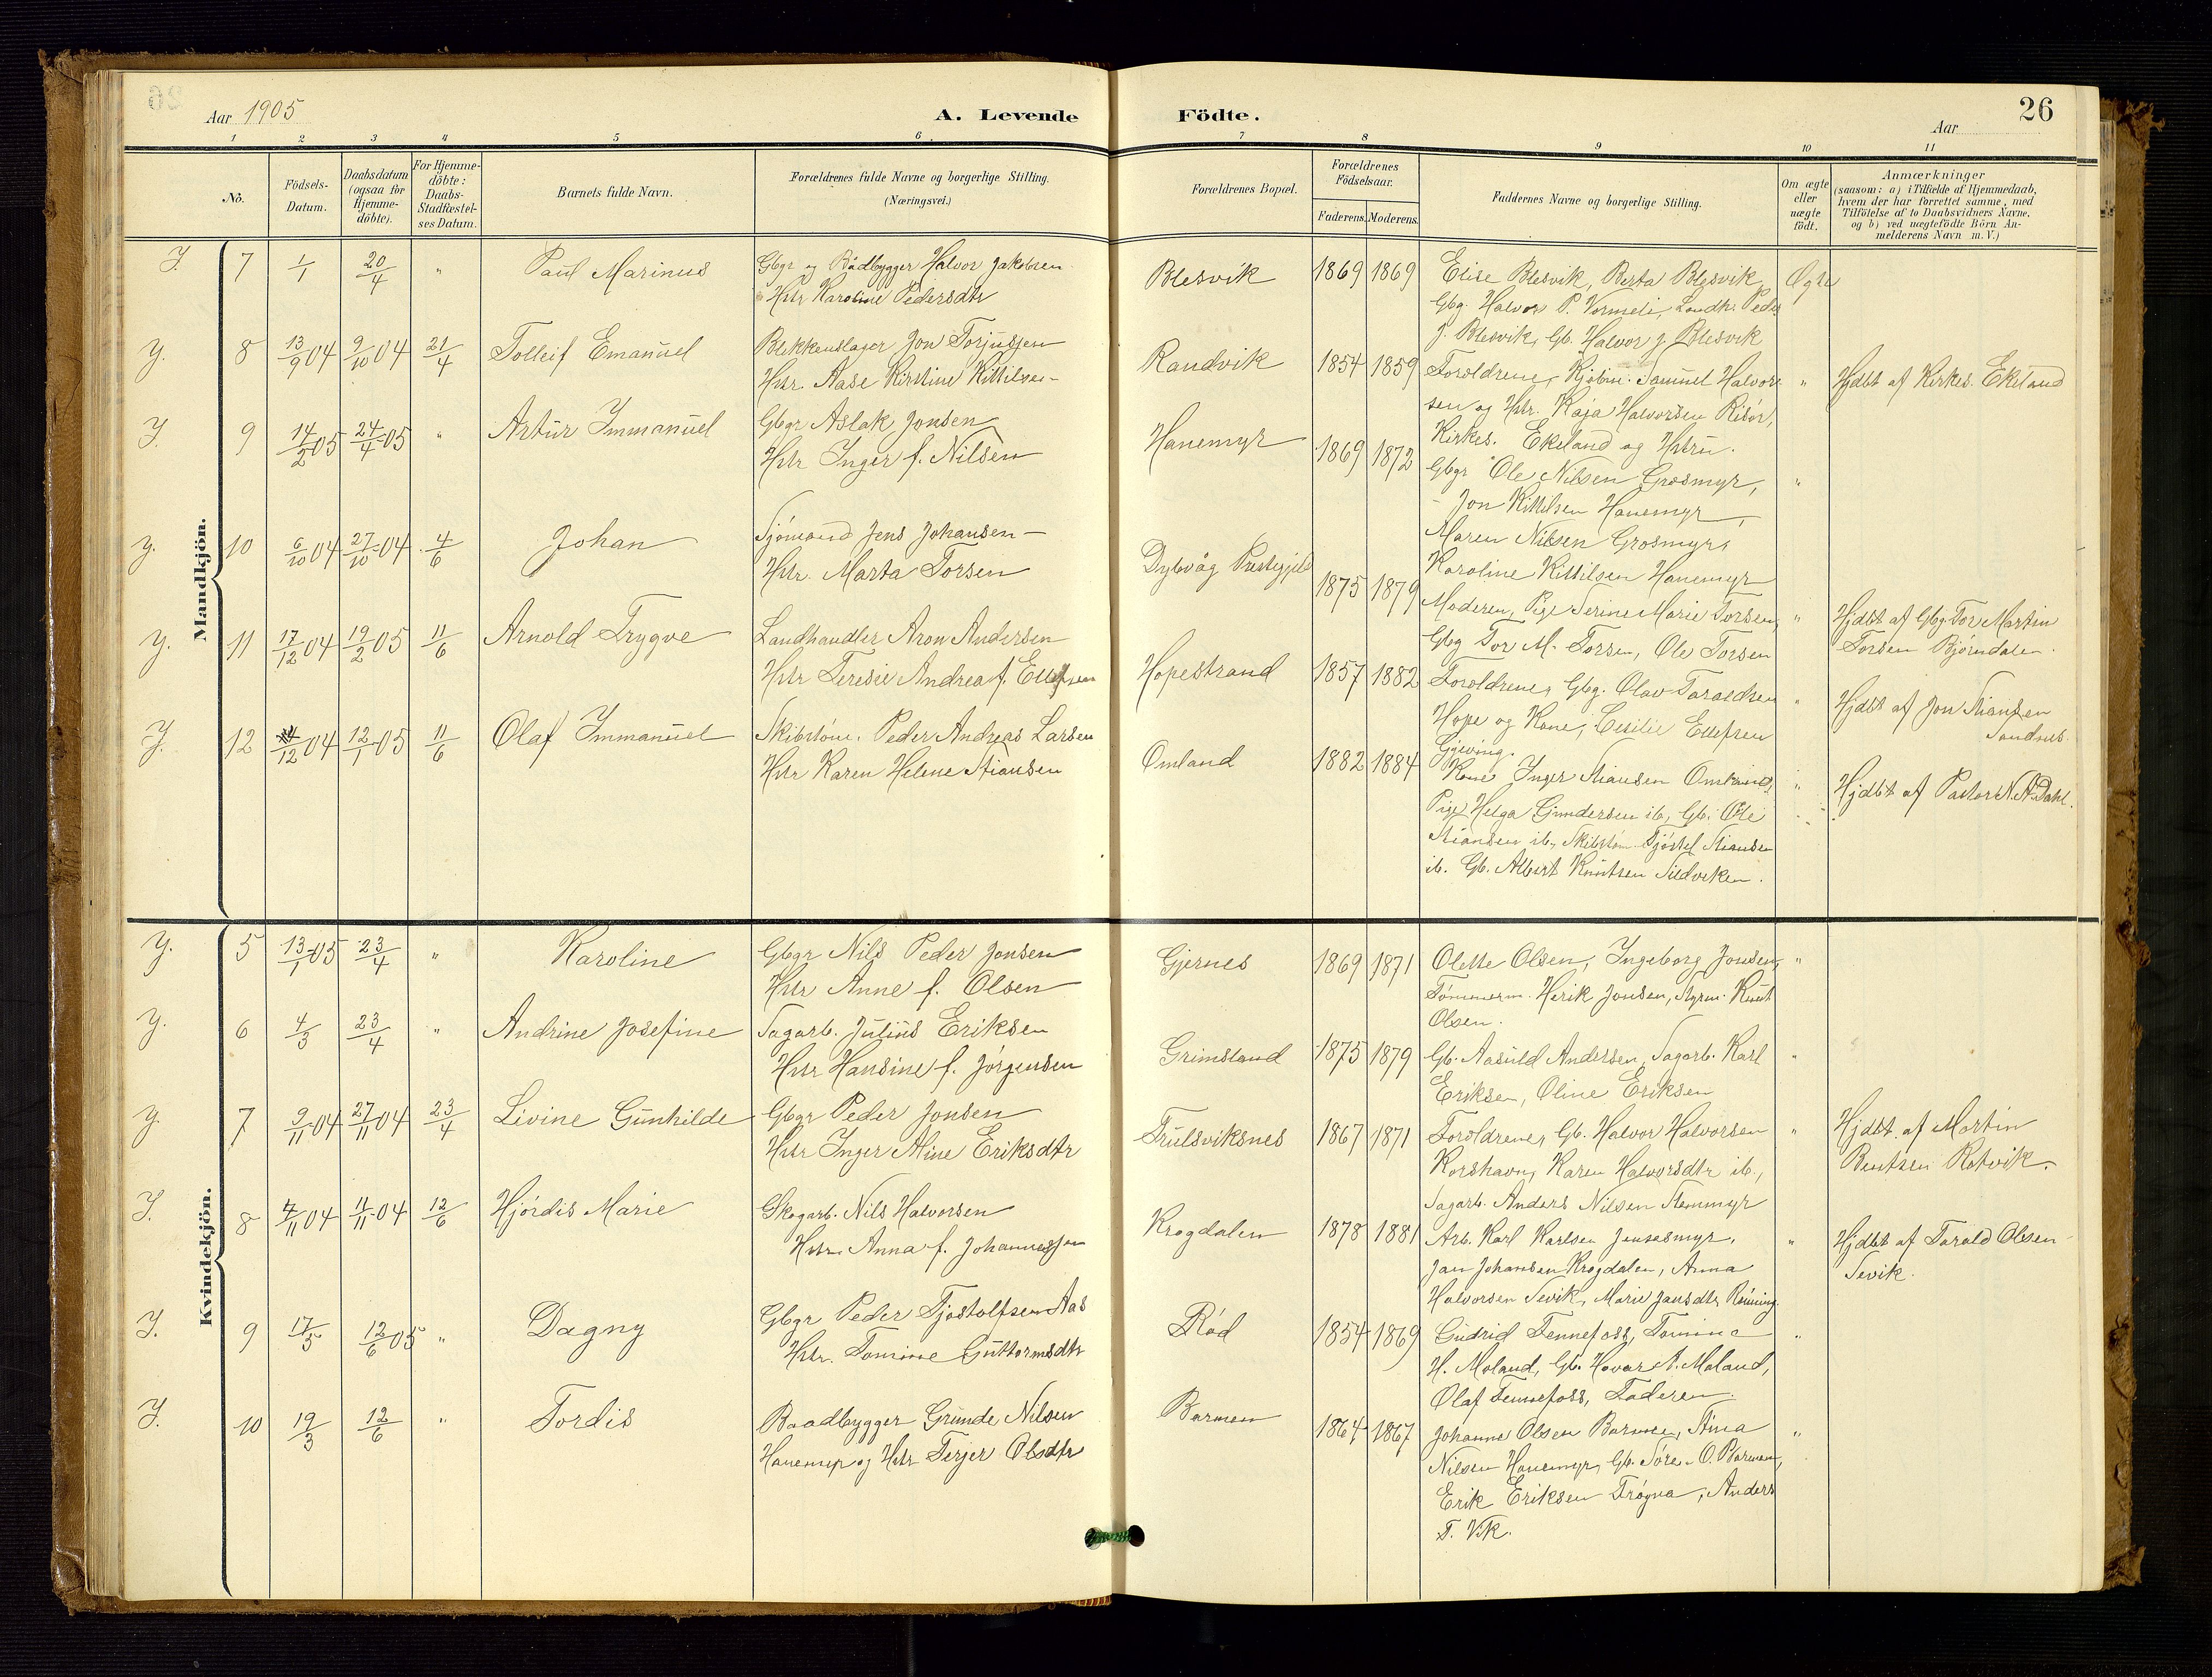 Aar 1905
A. Levende
Födte.
Aar
26
1 2 3 4 5 6 7 8 9 10 11
No.
Födsels-Datum.
Daabsdatum (ogsaa for Hjemme-döbte).
For Hjemme-döbte: Daabs-Stadfæstel-ses Datum.
Barnets fulde Navn.
Forældrenes fulde Navne og borgerlige Stilling.
(Næringsvei.)
Forældrenes Bopæl.
Forældrenes Födselsaar.
Faderens. Moderens.
Faddernes Navne og borgerlige Stilling.
Om ægte eller uægte födt.
Anmærkninger
(saasom: a) i Tilfælde af Hjemmedaab,
hvem der har forrettet samme, med
Tilföielse af to Daabsvidners Navne,
og b) ved uægtefödte Börn An-
melderens Navn m. V.)
Mandkjön.
J. 7 1/1 20/4 " Paul Marinus
Gbgr og Baadbygger Halvor Jakobsen
Hstr Karoline Pedersdtr
Blesvik 1869 1869
Elise Blesvik, Berta Blesvik
Gbg. Halvor P. Vormeli, Landh. Peder
J. Blesvik, Gb. Halvor J. Blesvik
Ægte
J. 8 13/9 04 9/10 04 21/4 Tolleif Emanuel
Blikkenslager Jon Torjussen
Hstr. Aase Kirstine Kittilsen
Randvik 1854 1859
Foroldrene, Kjøbm. Samuel Halvor-
sen og Hstr. Kaja Halvorsen Risør,
Kirkes. Ekeland og Hstru.
" Hjdbt af Kirkes. Ekeland
J. 9 14/2 05 24/4 05 " Artur Immanuel
Gbgr Aslak Jonsen
Hstr Inger f. Nilsen
Hanemyr 1869 1872
Gbgr Ole Nilsen Grosmyr,
- Jon Kittilsen Hanemyr,
Maren Nilsen Grosmyr,
Karoline Kittilsen Hanemyr
"
J. 10 6/10 04 27/10 04 4/6 Johan
Sjömand Jens Johansen
Hstr. Marta Torsen
Dybvåg Prestegjeld 1875 1879
Moderen, Pige Serine Marie Torsen,
Gbg Tor M. Torsen, Ole Torsen
" Hjdbt af Gbg. Tor Martin
Torsen Bjørndalen.
J. 11 17/12 04 19/2 05 11/6 Arnold Trygve
Landhandler Aron Andersen
Hstr Teresie Andrea f. Ellefsen
Hopestrand 1857 1882
Foroldrene, Gbg. Olav Taraldsen
Hope og Kone, Cesilie Ellefsen
Gjeving.
" Hjdbt af Jon Stiansen
Sandnes.
J. 12 /12 04 12/1 05 11/6 Olaf Immanuel
Skibstöm. Peder Andreas Larsen
Hstr Karen Helene Stiansen
Omland 1882 1884
Kone Inger Stiansen Omland,
Pige Helga Gundersen ib, Gb. Ole
Stiansen ib., Skibstöm. Tjöstel Stiansen
ib. Gb. Albert Knutsen Sildviken.
" Hjdbt af Pastor N. A. Dahl.
Kvindekjön.
J. 5 13/1 05 23/4 " Karoline
Gbgr Nils Peder Jonsen
Hstr Anne f. Olsen
Gjernes 1869 1871
Olette Olsen, Ingeborg Jonsen,
Tömmerm. Herik Jonsen, Styrm. Knut
Olsen.
"
J. 6 4/3 23/4 " Andrine Josefine
Sagarb. Julius Eriksen
Hstr Hansine f. Jörgensen
Grimsland 1875 1879
Gb. Aasuld Andersen, Sagarb. Karl
Eriksen, Oline Eriksen
"
J. 7 9/11 04 27/11 04 23/4 Livine Gunhilde
Gbgr Peder Jonsen
Hstr Inger Aline Eriksdtr
Trulsviksnes 1867 1871
Foroldrene, Gb. Halvor Halvorsen
Korshavn, Karen Halvorsdtr ib,
Sagarb. Anders Nilsen Stemmyr
" Hjdbt. af Martin
Bentsen Rotvik.
J. 8 4/11 04 11/11 04 12/6 Hjördis Marie
Skogarb. Nils Halvorsen
Hstr. Anna f. Johannessen
Krogdalen 1878 1881
Arb. Karl Karlsen Jensesmyr,
Jan Johansen Krogdalen, Anna
Halvorsen Sevik, Marie Jansdtr Rönning.
" Hjdbt af Tarald Olsen
Sevik.
J. 9 17/5 12/6 05 " Dagny
Gbgr Peder Tjostolfsen Aas
Hstr. Tomine Guttormsdtr
Röd 1854 1869
Gudrid Fennefoss, Tomine
H. Moland, Gb. Hovar A. Moland,
Olaf Fennefoss, Faderen.
"
J. 10 19/3 12/6 " Tordis
Baadbygger Grunde Nilsen
Hanemyr og Hstr Terjer Olsdtr
Barmen 1864 1867
Johanne Olsen Barmen, Stina
Nilsen Hanemyr, Gb. Söre. O. Barmen,
Erik Eriksen Trögna, Anders
T. Vik.
"